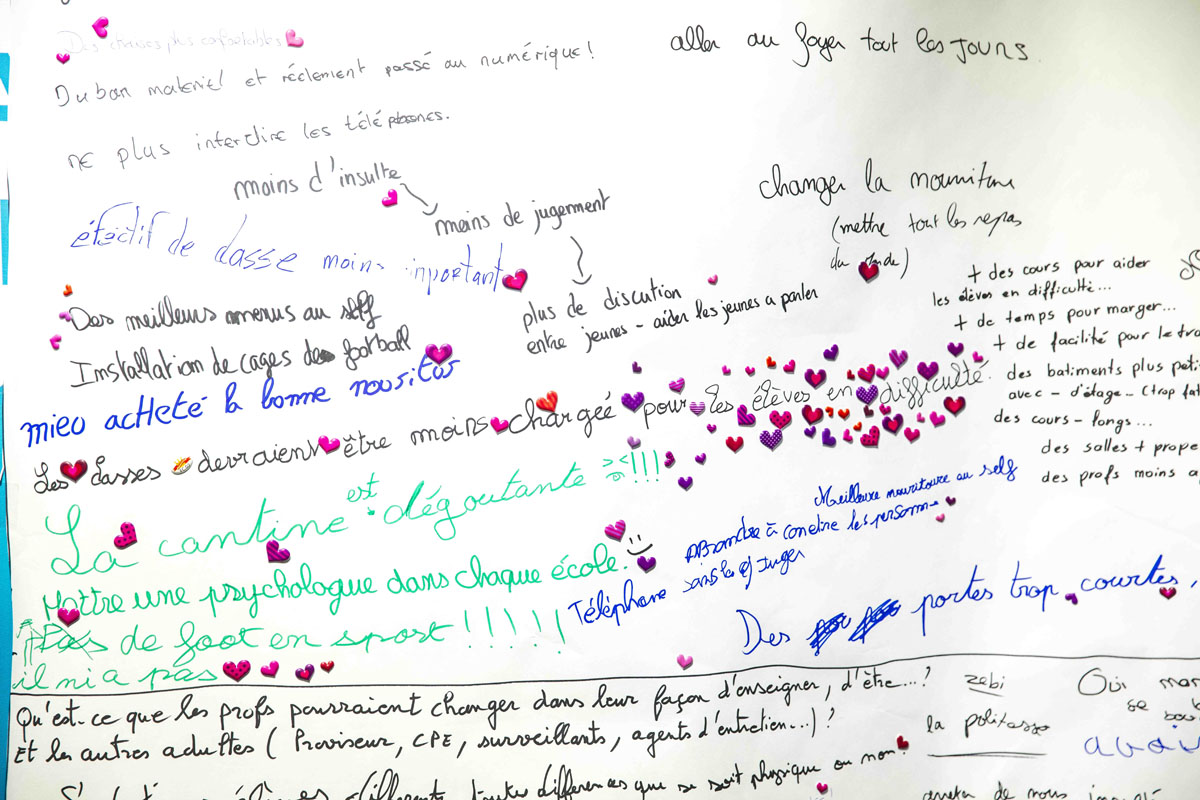 Des chaises plus confortables
Du bon materiel et réelement passé au numérique !
aller au foyer tout les jours.
ne plus interdire les téléphones.
moins d'insulte
moins de jugement
plus de discution
entre jeunes - aider les jeunes a parler
changer la nourriture
(mettre tout les repas
du monde)
éfectif de classe moins inportant
Des meilleurs menus au self
Installation de cages de football
mieu acheté la bonne nouritur
Les classes devraient être moins chargée pour les élèves en difficulté.
+ des cours pour aider
les élèves en difficulté...
+ de temps pour manger...
+ de facilité pour le tra
des batiments plus peti
avec - d'étage - (trop fat
des cours - longs...
des salles + prope
des profs moins a
La cantine est dégoutante ><!!!
Meilleure nourritoure au self
Mettre une psychologue dans chaque école.
Téléphone
Aprendre à conetre les personne
sans les juger
Pas de foot en sport !!!!!
il ni a pas
Des portes trop courtes,
Qu'est-ce que les profs pourraient changer dans leur façon d'enseigner, d'être...?
Et les autres adultes (Proviseur, CPE, surveillants, agents d'entretien...) ?
zebi
la politesse
Oui
se
différents, toutes différences que se soit physique ou non.
arreter de nous